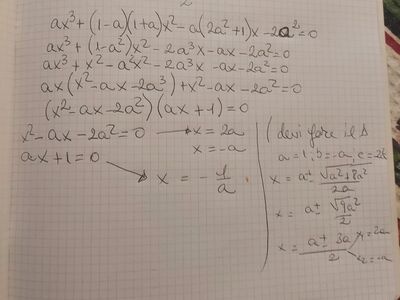 2
ax³+(1-a)(1+a)x²-a(2a²+1)x-2a²=0
ax³+(1-a²)x²-2a³x-ax-2a²=0
ax³+x²-a²x²-2a³x-ax-2a²=0
ax(x²-ax-2a³)+x²-ax-2a²=0
(x²-ax-2a²)(ax+1)=0
x²-ax-2a²=0 → x=2a
x=-a
ax+1=0 → x = -1/a.
(devi fare il Δ
a=1, b=-a, c=-2a²
x = a±√(a²+8a²)/2a
x = a±√(9a²)/2
x = (a±3a)/2 x₁=2a
x₂=-a